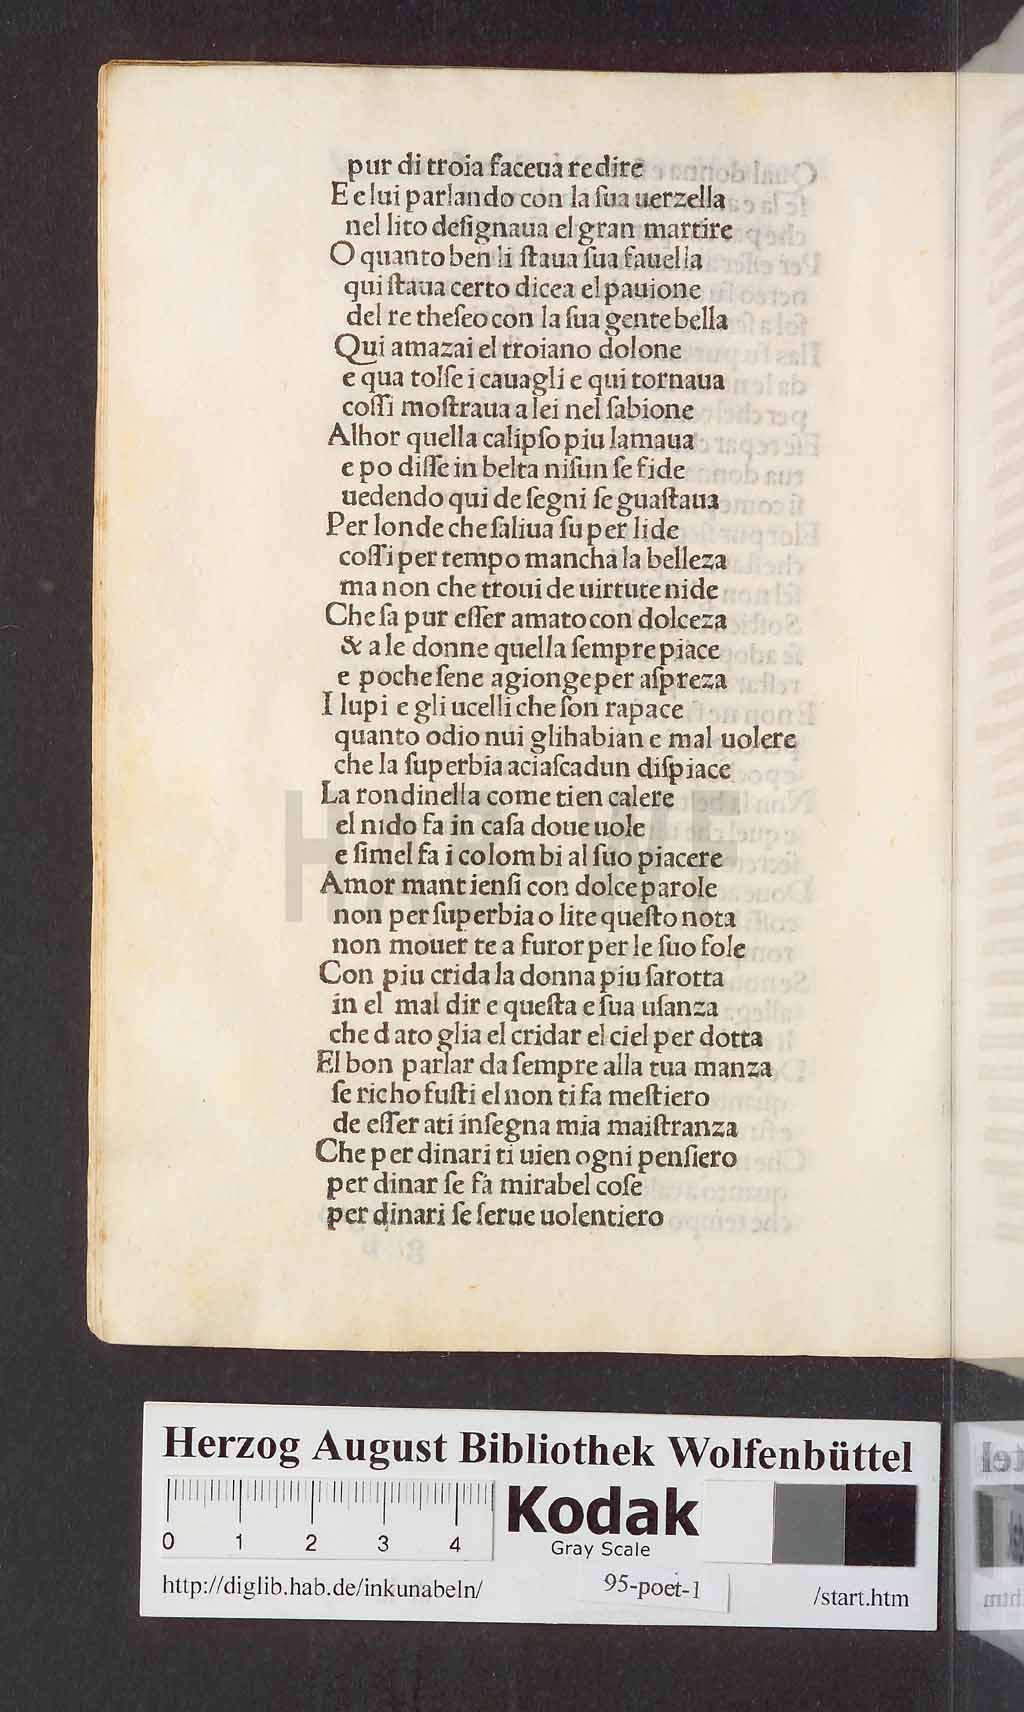 pur di troia faceua redire
E e lui parlando con la ſua uerzella
nel lito deſignaua el gran martire
O quanto ben li ſtaua ſua fauella
qui ſtaua certo dicea el pauione
del re theſeo con la ſua gente bella
Qui amazai el troiano dolone
e qua tolſe i cauagli e qui tornaua
coſſi moſtraua a lei nel ſabione
Alhor quella calipſo piu lamaua
e po diſſe in belta niſun ſe fide
uedendo qui de ſegni ſe guaſtaua
Per londe che ſaliua ſu per lide
coſſi per tempo mancha la belleza
ma non che troui de uirtute nide
Che ſa pur eſſer amato con dolceza
& a le donne quella ſempre piace
e poche ſene agionge per aſpreza
I lupi e gli ucelli che ſon rapace
quanto odio nui glihabian e mal uolere
che la ſuperbia aciaſcadun diſpiace
La rondinella come tien calere
el nido fa in caſa doue uole
e ſimel fa i colombi al ſuo piacere
Amor mantienſi con dolce parole
non per ſuperbia o lite queſto nota
non mouer te a furor per le ſuo fole
Con piu crida la donna piu ſarotta
in el mal dir e queſta e ſua uſanza
che dato glia el cridar el ciel per dotta
El bon parlar da ſempre alla tua manza
ſe richo fuſti el non ti fa meſtiero
de eſſer ati inſegna mia maiſtranza
Che per dinari ti uien ogni penſiero
per dinar ſe fa mirabel coſe
per dinari ſe ſerue uolentiero
HAB WF
Herzog August Bibliothek Wolfenbüttel
0 1 2 3 4
Kodak
Gray Scale
http://diglib.hab.de/inkunabeln/ 95-poet-1 /start.htm